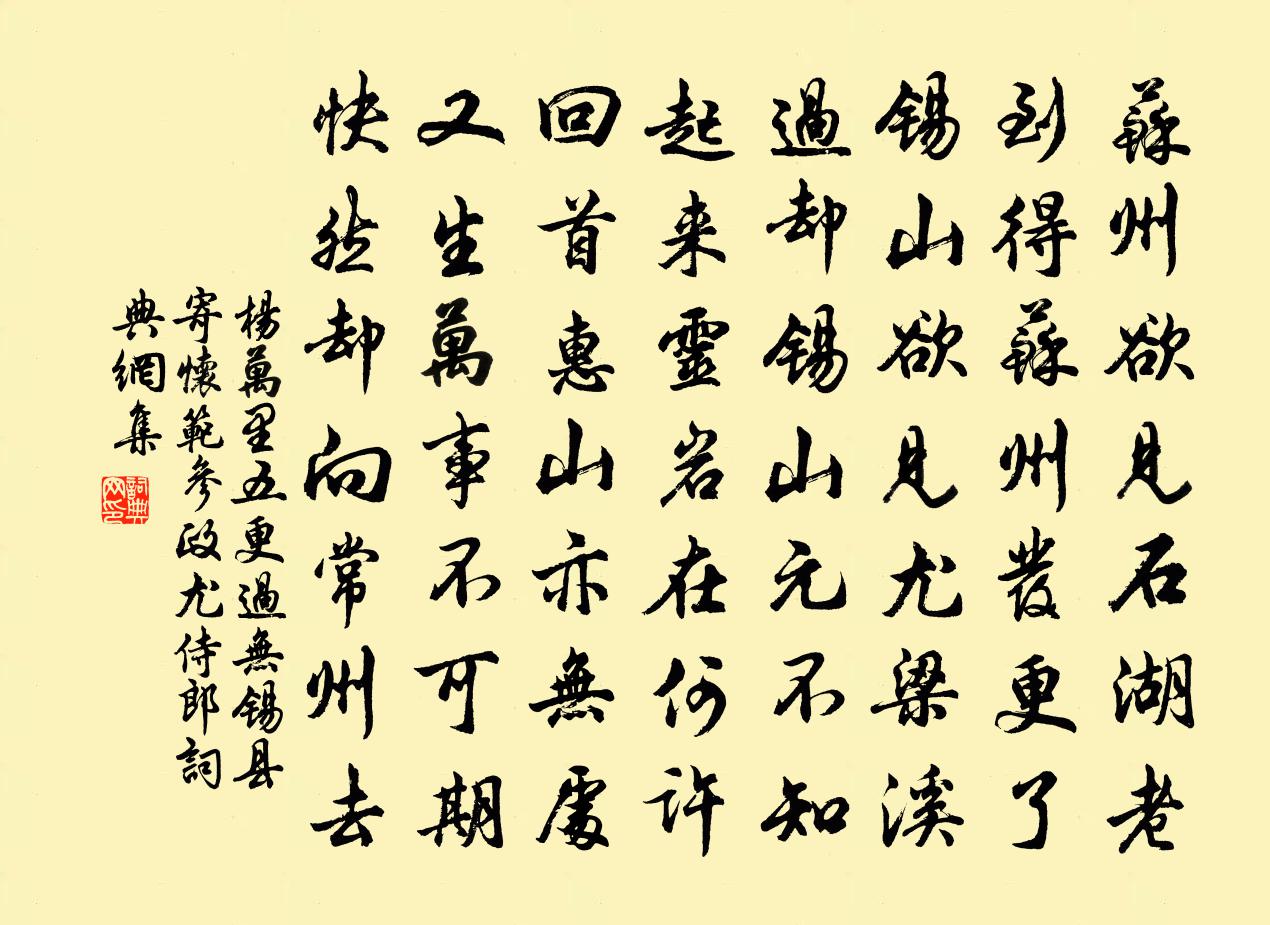 蘇州欲見石湖老
到得蘇州發更了
錫山欲見尤梁溪
過却錫山元不知
起来靈岩在何許
回首惠山亦無處
又生萬事不可期
快然却向常州去
楊萬里五更過無錫县
寄懷範參政尤侍郎詞
典網集
詞典
网印